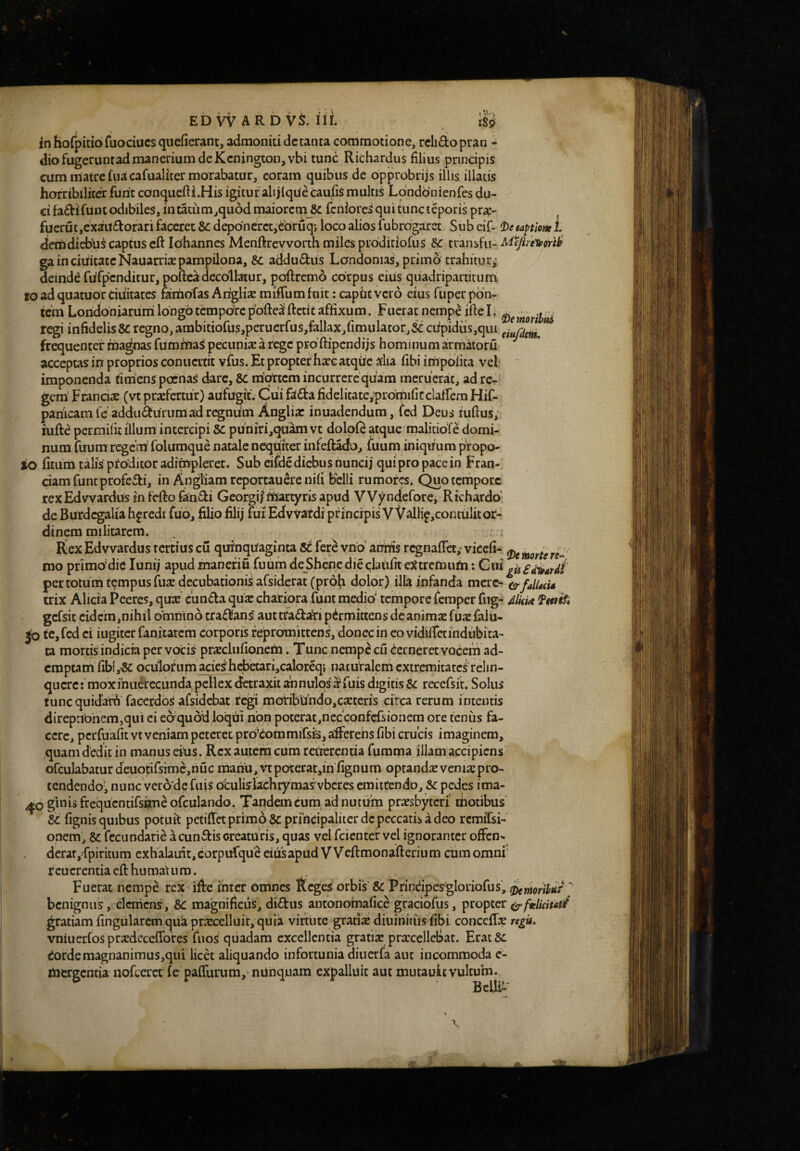 EDVVARDVS. III. 189
in hoſpitio ſuo ciues quæſierant, admoniti de tanta commotione, relicto pran -
dio fugerunt ad manerium de Kenington, vbi tunc Richardus filius principis
cum matre ſua caſualiter morabatur, coram quibus de opprobrijs illis illatis
horribiliter ſunt conqueſti. His igitur alijſque cauſis multis Londonienſes du-
ci facti ſunt odibiles, in tātum, quòd maiorem & ſeniores qui tunc tēporis præ-
fuerūt, exauctorari faceret & deponeret, eorūq; loco alios ſubrogaret. Sub eiſ-
dem diebus captus eſt Iohannes Menſtrevvorth miles proditioſus & transfu-
ga in ciuitate Nauarriæ pampilona, & adductus Londonias, primò trahitur,
deinde ſuſpenditur, poſteà decollatur, poſtremò corpus eius quadripartitum
10 ad quatuor ciuitates famoſas Angliæ miſſum fuit: caput verò eius ſuper pon-
tem Londoniarum longo tempore poſteà ſtetit affixum. Fuerat nempè iſte I.
regi infidelis & regno, ambitioſus, peruerſus, fallax, ſimulator, & cupidus, qui
frequenter magnas ſummas pecuniæ à rege pro ſtipendijs hominum armatorū
acceptas in proprios conuertit vſus. Et propter hæc atque alia ſibi impoſita vel
imponenda timens pœnas dare, & mortem incurrere quàm meruerat, ad re-
gem Franciæ (vt præfertur) aufugit. Cui facta fidelitate, promiſit claſſem Hiſ-
panicam ſe adducturum ad regnum Angliæ inuadendum, ſed Deus iuſtus,
iuſtè permiſit illum intercipi & puniri, quàm vt doloſè atque malitioſè domi-
num ſuum regem ſolumquè natale nequiter infeſtādo, ſuum iniquum propo-
20 ſitum talis proditor adimpleret. Sub eiſdē diebus nuncij qui pro pace in Fran-
ciam ſunt profecti, in Angliam reportauêre niſi belli rumores. Quo tempore
rex Edvvardus in feſto ſancti Georgij martyris apud VVyndeſore, Richardo
de Burdegalia hęredi ſuo, filio filij ſui Edvvardi principis VVallię, contulit or-
dinem militarem.
Rex Edvvardus tertius cū quinquaginta & ferè vno annis regnaſſet, viceſi-
mo primo die Iunij apud maneriū ſuum de Shene die clauſit extremum: Cui
per totum tempus ſuæ decubationis aſsiderat (proh dolor) illa infanda mere-
trix Alicia Peeres, quæ cuncta quæ chariora ſunt medio tempore ſemper ſug-
geſsit eidem, nihil omnino tractans aut tractari pérmittens de animæ ſuæ ſalu-
30 te, ſed ei iugiter ſanitatem corporis repromittens, donec in eo vidiſſet indubita-
ta mortis indicia per vocis præcluſionem. Tunc nempè cū cerneret vocem ad-
emptam ſibi, & oculorum acies hebetari, calorēq; naturalem extremitates relin-
quere: mox inuerecunda pellex detraxit annulos à ſuis digitis & receſsit. Solus
tunc quidam ſacerdos aſsidebat regi moribundo, cæteris circa rerum intentis
direptionem, qui ei eo quòd loqui non poterat, nec confeſsionem ore tenùs fa-
cere, perſuaſit vt veniam peteret pro commiſsis, afferens ſibi crucis imaginem,
quam dedit in manus eius. Rex autem cum reuerentia ſumma illam accipiens
oſculabatur deuotiſsimè, nūc manu, vt poterat, in ſignum optandæ veniæ pro-
tendendo, nunc verò de ſuis oculis lachrymas vberes emittendo, & pedes ima-
40 ginis frequentiſsimè oſculando. Tandem cum ad nutum præsbyteri motibus
& ſignis quibus potuit petiſſet primò & principaliter de peccatis à deo remiſsi-
onem, & ſecundariè à cunctis creaturis, quas vel ſcienter vel ignoranter offen-
derat, ſpiritum exhalauit, corpuſquè eius apud VVeſtmonaſterium cum omni
reuerentia eſt humatum.
Fuerat nempè rex iſte inter omnes Reges orbis & Principes glorioſus,
benignus, clemens, & magnificus, dictus antonomaſicè gracioſus, propter
gratiam ſingularem quà præcelluit, quia virtute gratiæ diuinitùs ſibi conceſſæ
vniuerſos prædeceſſores ſuos quadam excellentia gratiæ præcellebat. Erat &
corde magnanimus, qui licèt aliquando infortunia diuerſa aut incommoda e-
mergentia noſceret ſe paſſurum, nunquam expalluit aut mutauit vultum.
Belli-
De captione I.
Menſtreworth
De moribus
eiuſdem.
De morte re-
gis Edwardi
& fallacia
Alicia Peeris.
De moribus
& felicitate
regis.